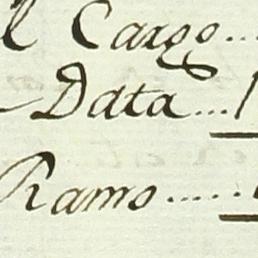 l Cargo...
Data...1
Ramo.....